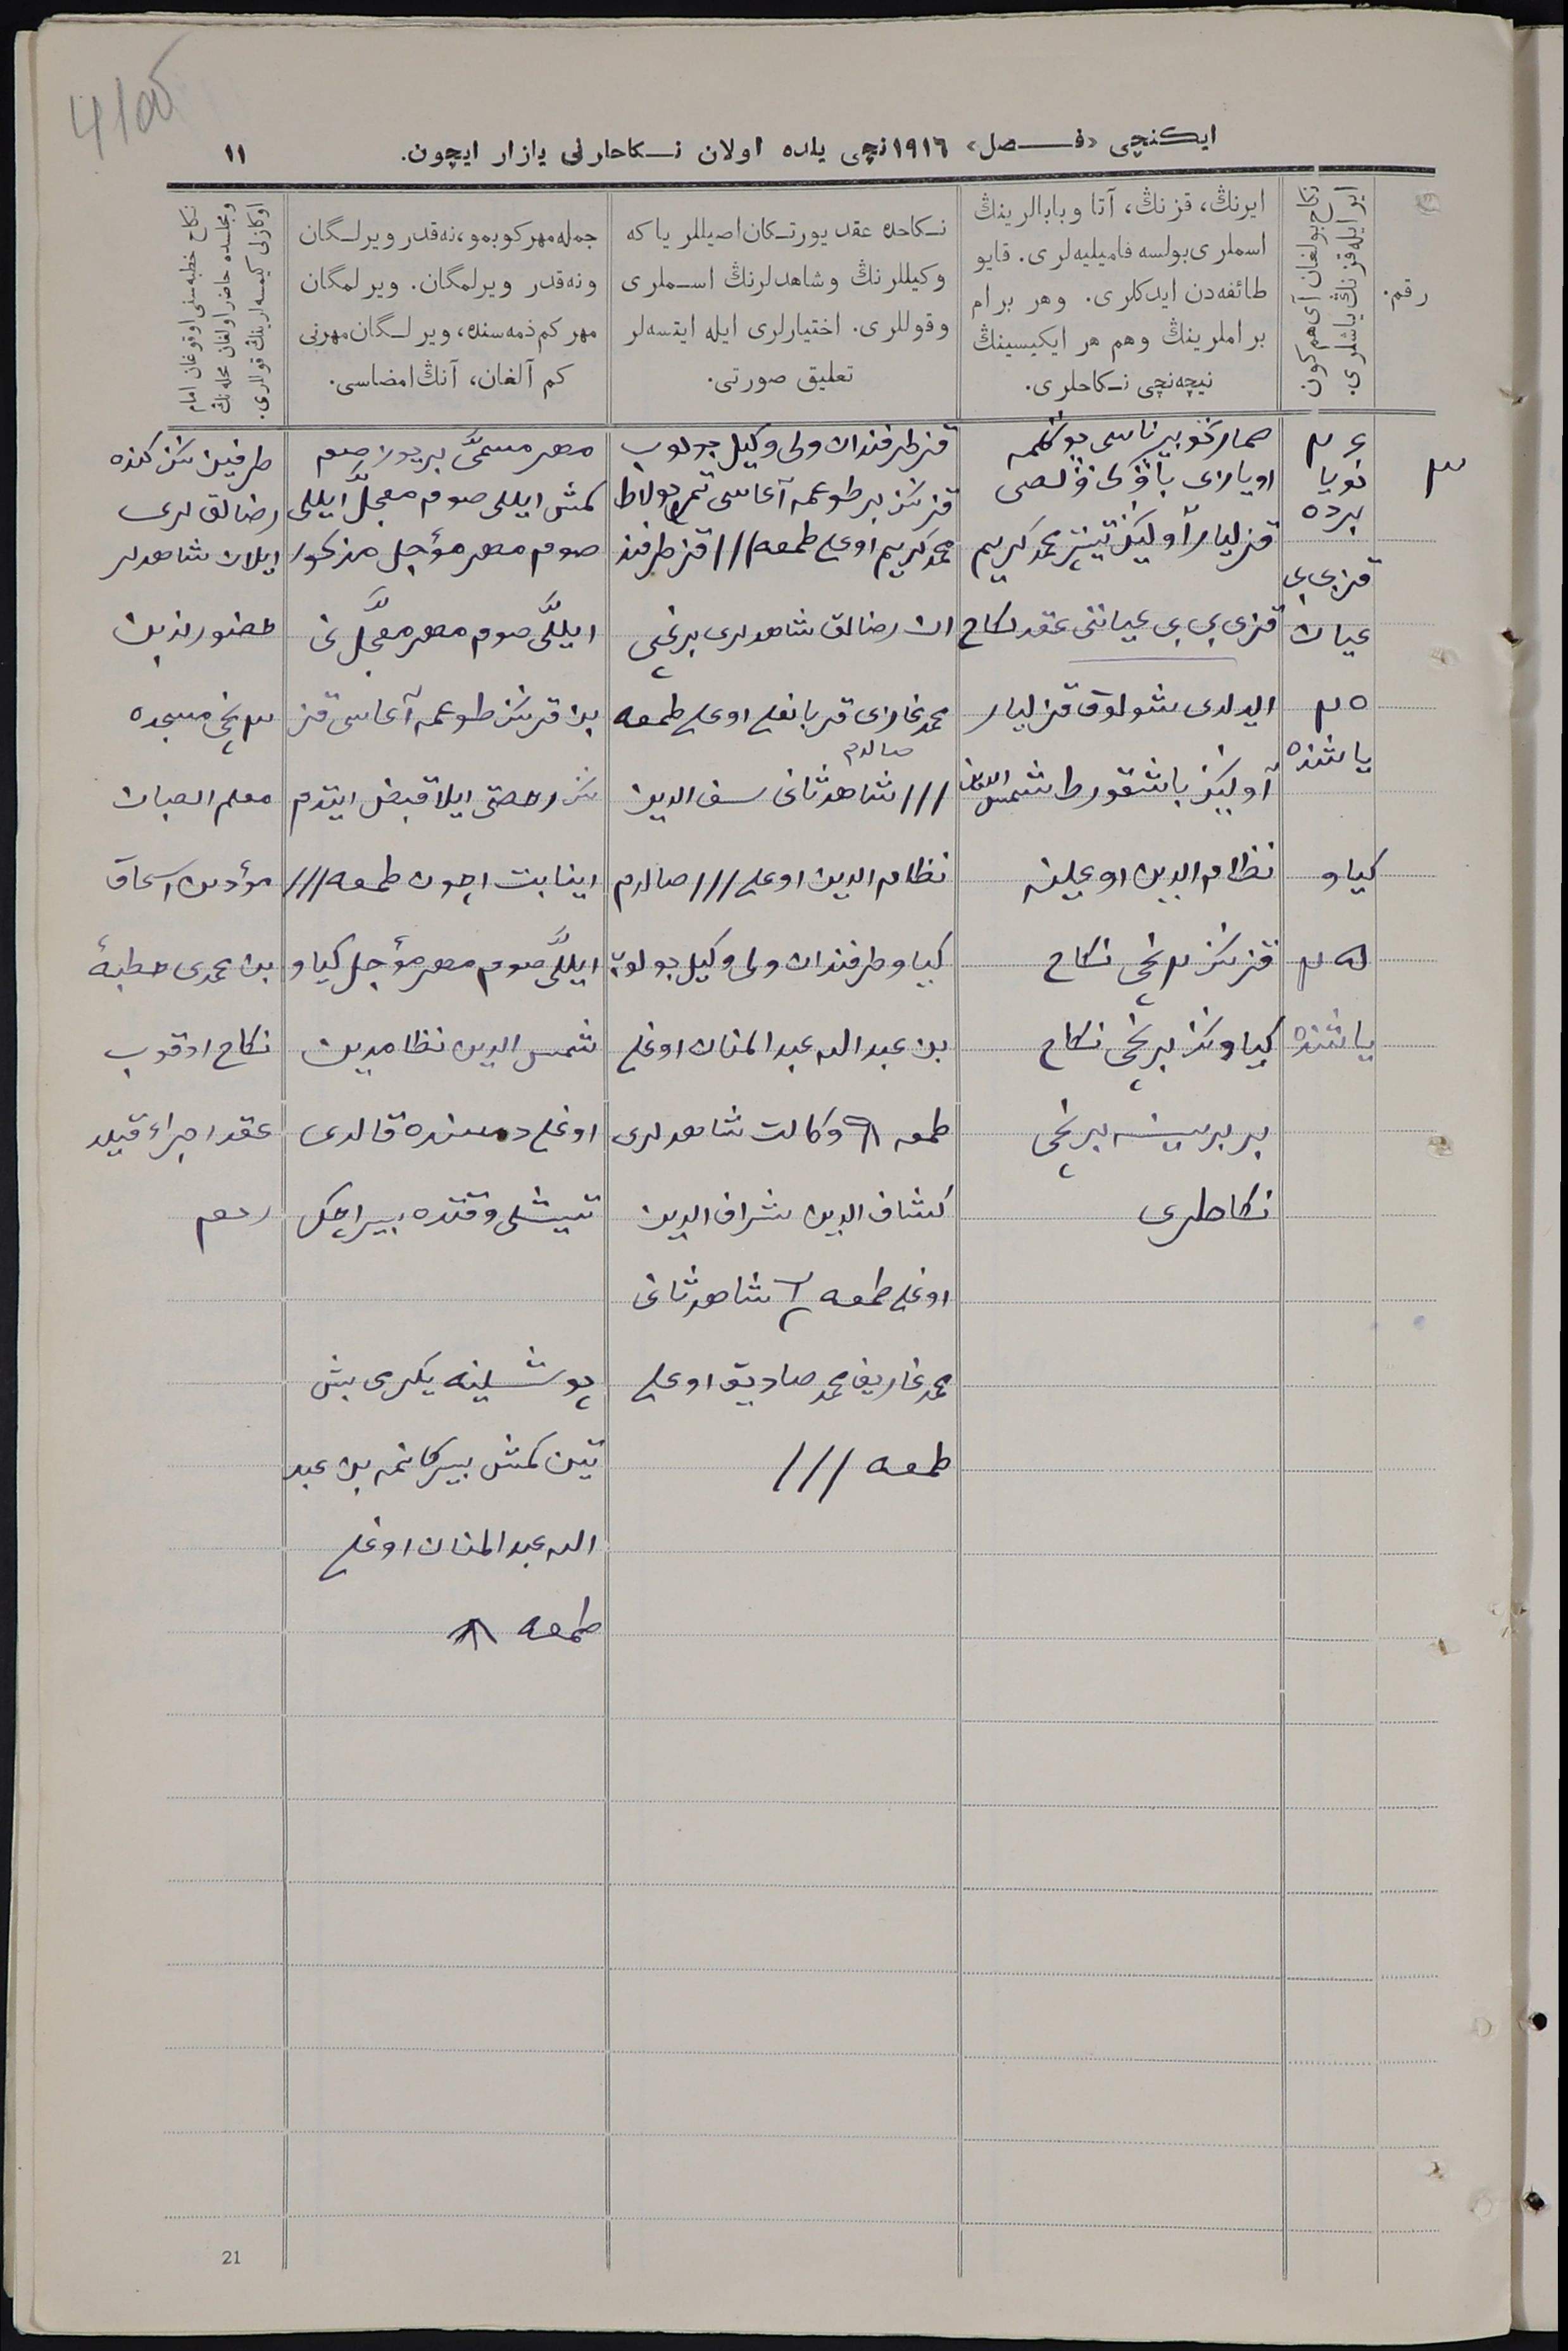 410б
ایكنچی «فـصل» ١٩١٦نچی یلده اولان نـكاحارنی یازار ایچون.
١١
رقم.
نكاح بولغان آی هم كون
ایر ایله قزنڭ یاشلری.
ایرنڭ، قزنڭ، آتا وبابالرینڭ
اسملری بولسه فامیلیه‌لری. قایو
طائفه‌دن ایدكلری. وهر برام
براملرینڭ وهم هر ایكیسینڭ
نیچه‌نچی نـكاحلری.
نـكاحده عقد یورتـكان اصیللر یا كه
وكیللرنڭ وشاهدلرنڭ اسـملری
وقوللری. اختیارلری ایله ایتسه‌لر
تعلیق صورتی.
جمله مهر كوبمو، نه‌قدر ویرلـگان
ونه‌قدر ویرلمگان. ویرلمگان
مهر كم ذمه‌سنده، ویرلـگان مهرنی
كم آلغان، آنڭ امضاسی.
نكاح خطبه‌سنی اوقوغان امام
ومجلسده حاضر اولغان محله‌نڭ
اوكازنی كیمسه‌لرینڭ قوللری.
٣
٢٤
نویا
برده
قز بی بی
عیان
٢٥
یاشنده
كیاو
٢٥
یاشنده
صمارغو بیرناسی
اویازی
قزلیار آولینڭ محمد كریم
قزی بی بی عیاننی عقد نكاح
ایلدی شولوق قزلیار
آولینڭ باشقورط شمس الدین
نظام الدین اوغلینه
قزننڭ ٢نچی نكاح
كیاوننڭ برنچی نكاح
بر برینه برنچی
نكاحلری
قز طرفندان ولی وكیل بولوب
قزننڭ بر طوغمه آغاسی تمر بولاط
محمد كریم اوغلی طمغه /// قز طرفند
ان رضالق شاهدلری برنچی
محمد غازی قربانغلی اوغلی طمغه
صالدم
/// شاهد ثانی سیف الدین
نظام الدین اوغلی /// صالدم
كیاو طرفندان ولی وكیل بولوب
بن عبد الله عبد المنان اوغلی
طمغه وكالت شاهدلری
كشاف الدین شراف الدین
اوغلی طمغه شاهد ثانی
محمد غاریف محمد صادیق اوغلی
طمغه ///
مهر مسمّی بر یوز صوم
كمش ایللی صوم معجّل ایللی
صوم مهر مؤجل مذكور
ایللی صوم مهر معجّل نی
بن قزننڭ طوغمه آغاسی قز
ننڭ رخصتی ایلا قبض ایتدم
اینابت اچون طمغه ///
ایللی صوم مهر مؤجل كیاو
شمس الدین نظامدین
اوغلی ذمسنده قالدی
تییشلی وقتده بیراچك
پوشلینه یكرمی بش
تین كمش بیركانمه بن عبد
الله عبد المنان اوغلی
طمغه
طرفین ننڭ كنده
رضالق لری
ایلان شاهدلر
حضورنده بن
٢نچی مسجده
معلم الصبیان
مؤذن اسحاق
بن محمدی خطبهٔ
نكاح اوقوب
عقد اجراء قیلد
21